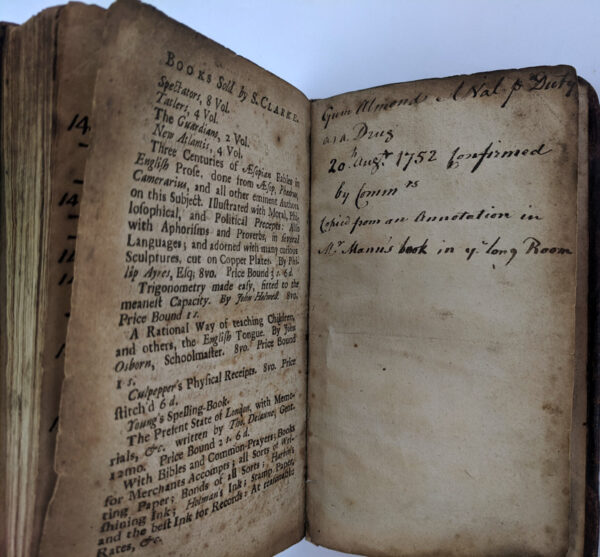 14
14
14
14
BOOKS Sold by S. CLARKE.
Spectators, 8 Vol.
Tatlers, 4 Vol.
The Guardians, 2 Vol.
New Atlantis, 4 Vol.
Three Centuries of Æsopian Fables in
English Prose, done from Æsop, Phædrus,
Camerarius, and all other eminent Authors
on this Subject. Illustrated with Moral, Phi-
losophical, and Political Precepts: Also
with Aphorisms and Proverbs, in several
Languages; and adorned with many curious
Sculptures, cut on Copper Plates. By Phi-
lip Ayres, Esq; 8vo. Price Bound 3 s. 6 d.
Trigonometry made easy, fitted to the
meanest Capacity. By John Holwell. 8vo.
Price Bound 1 s.
A Rational Way of teaching Children,
and others, the English Tongue. By John
Osborn, Schoolmaster. 8vo. Price Bound
1 s.
Culpepper's Physical Receipts. 8vo. Price
stitch'd 6 d.
Young's Spelling-Book.
The Present State of London, with Memo-
rials, &c. written by Tho. Delaune, Gent.
12mo. Price Bound 2 s. 6 d.
With Bibles and Common-Prayers; Books
for Merchants Accompts; all Sorts of Wri-
ting Paper; Bonds of all Sorts;
shining Ink; Holman's Ink; Stamp Paper,
and the best Ink for Records: At reasonable
Rates, &c.
Gum Almonds Val pr Duty
as a Drug
20th Augt. 1752 Confirmed
by Commrs
Copied from an Annotation in
Mr Mann's book in ye long Room